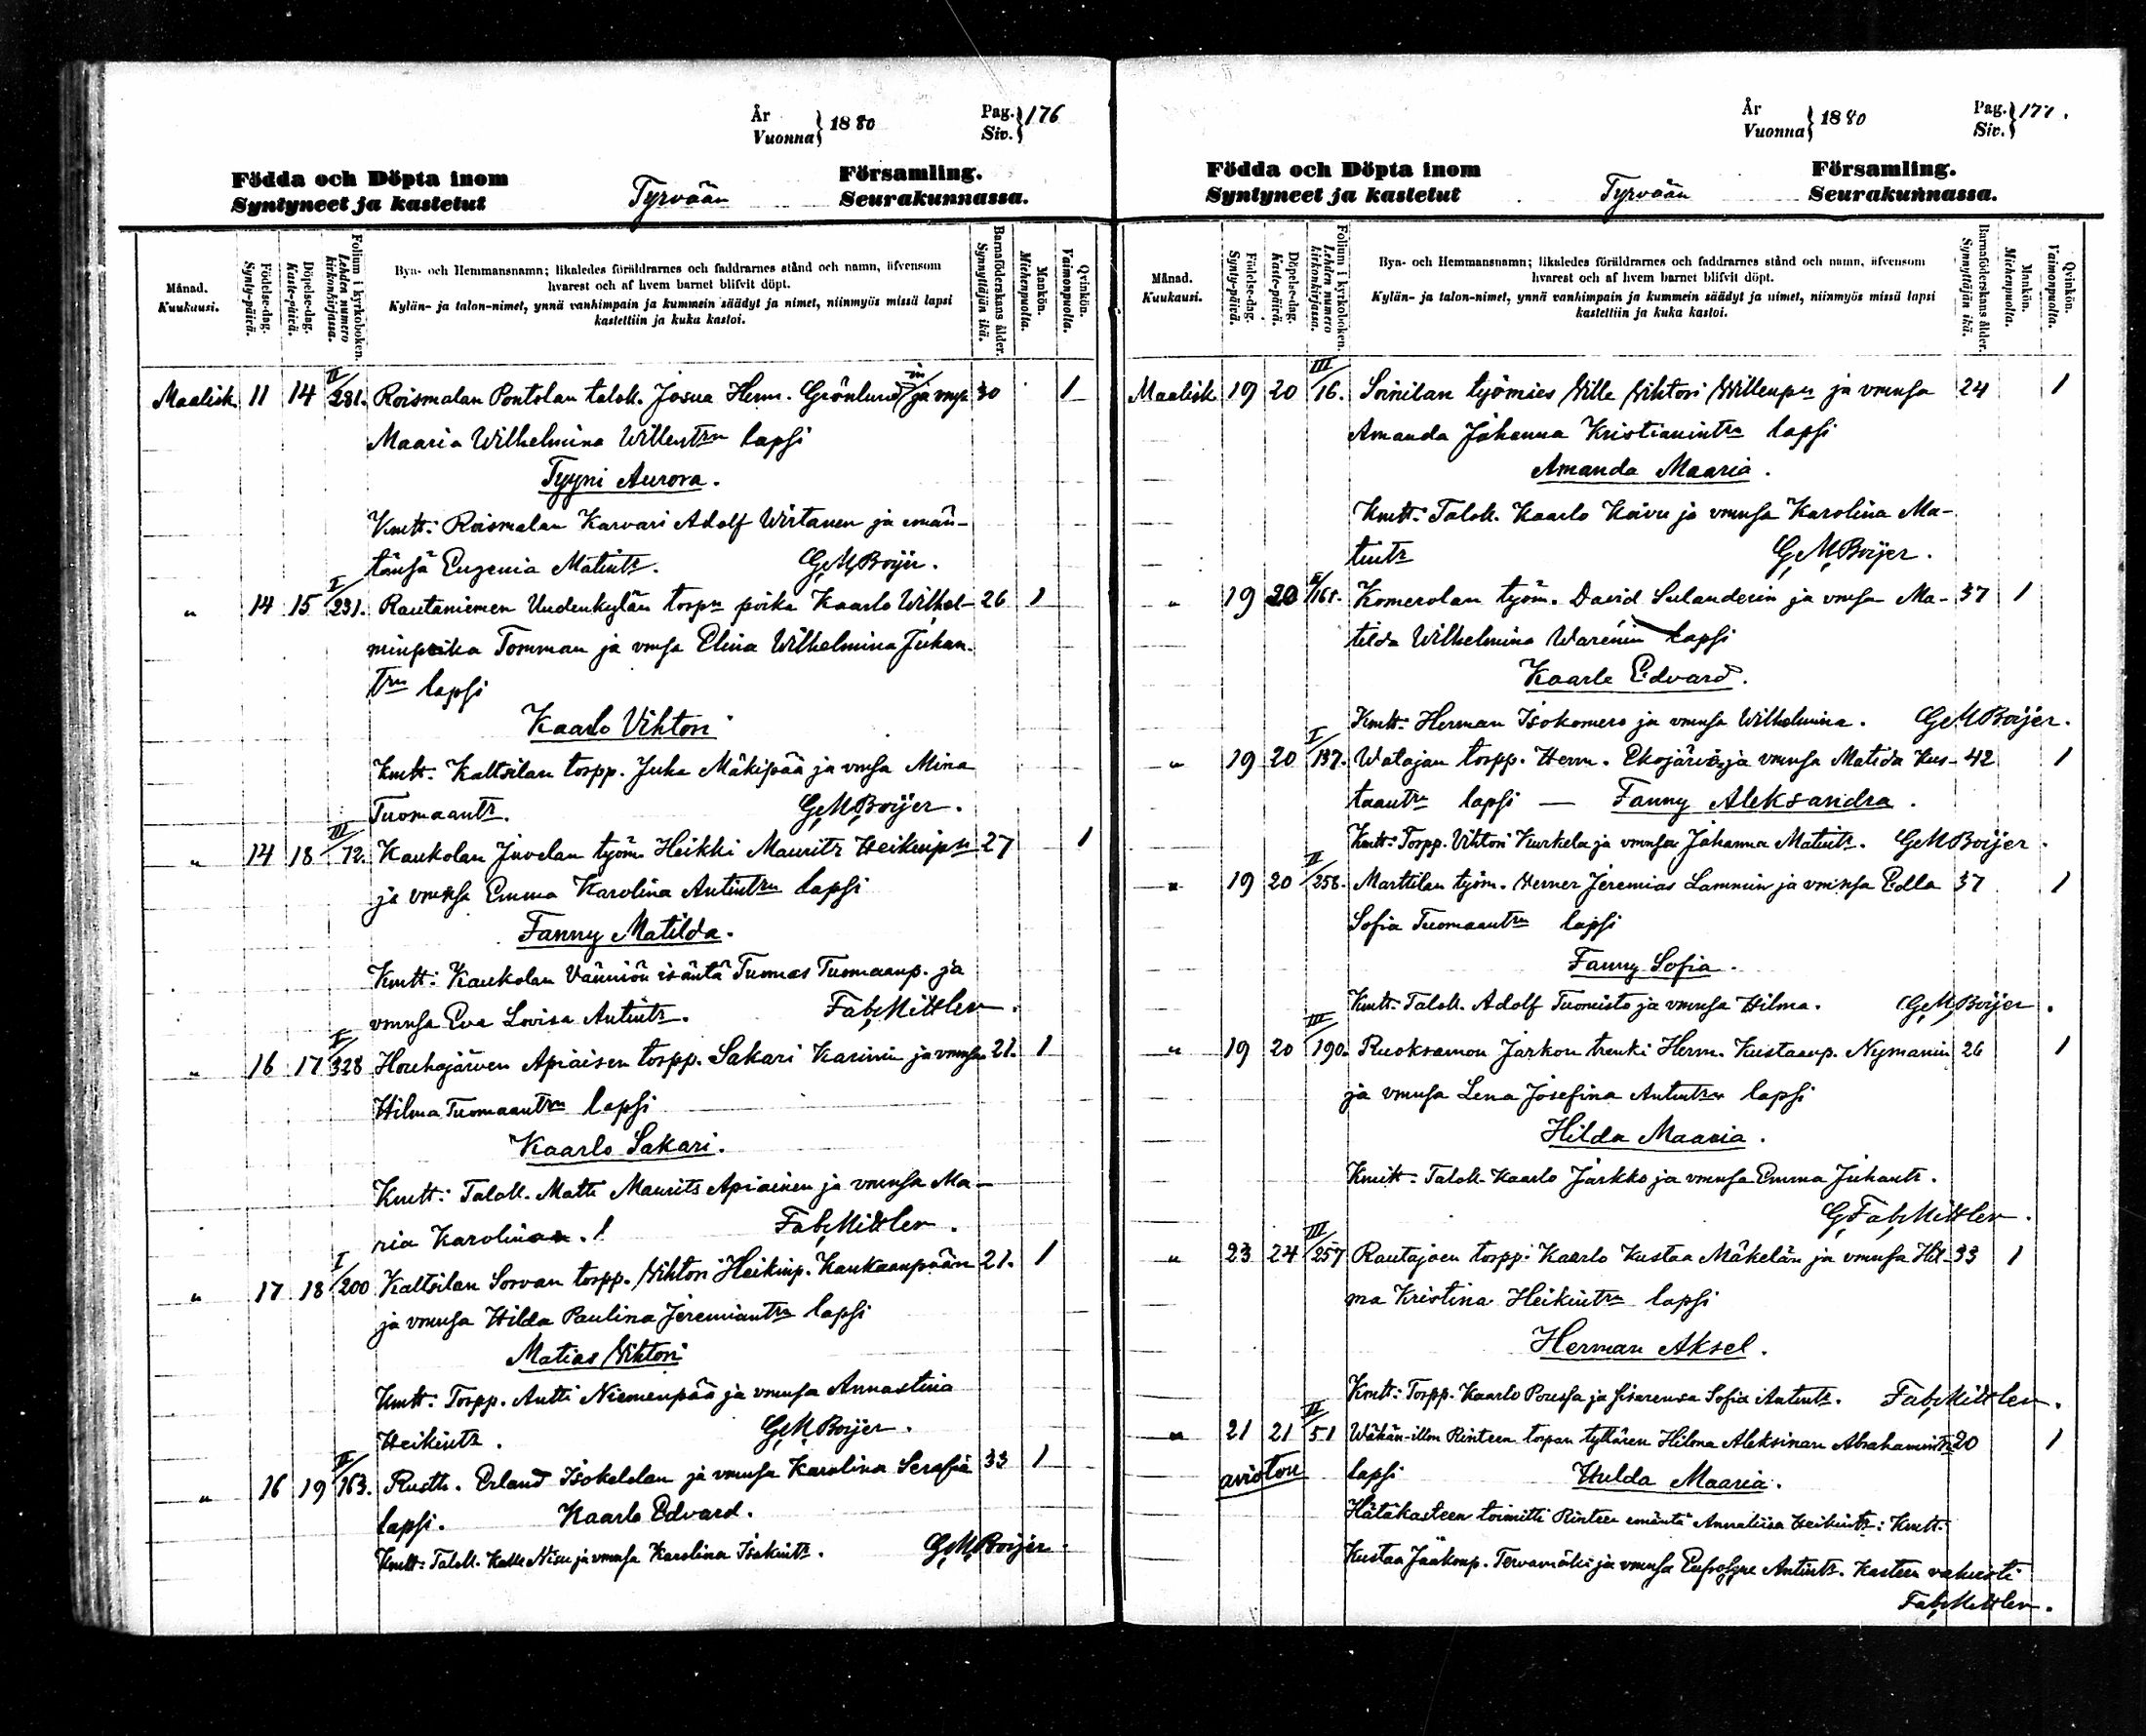 År
Vuonna } 1880
Pag.
Siv. } 176
Födda och Döpta inom
Syntyneet ja kastetut
Tyrvään
Församling.
Seurakunnassa.
Månad.
Kuukausi.
Födelse-dag.
Synty-päivä.
Döpelse-dag.
Kaste-päivä.
Folium i kyrkoboken.
Lehden numero
kirkonkirjassa.
Bya- och Hemmansnamn; likaledes föräldrarnes och faddrarnes stånd och namn, äfvensom
hvarest och af hvem barnet blifvit döpt.
Kylän- ja talon-nimet, ynnä vanhimpain ja kummein säädyt ja nimet, niinmyös missä lapsi
kastettiin ja kuka kastoi.
Barnaföderskans ålder.
Synnyttäjän ikä.
Mankön.
Miehenpuolta.
Qvinkön.
Vaimonpuolta.
Maalisk. 11 14 II/281. Roismalan Pontolan talok. Josua Herm. Grönlund in ja vmsa 30 1
Maaria Wilhelmina Willentrn lapsi
Tyyni Aurora.
Kmtt: Roismalan Karvari Adolf Wirtanen ja emän-
tänsä Eugenia Matintr. G. M. Boijer.
" 14 15 I/231. Rautaniemen Uudenkylän torpn poika Kaarlo Wilhel- 26 1
minpoika Tomman ja vmsa Elina Wilhelmina Juhan-
trn lapsi
Kaarlo Vihtori
Kmtt: Kaltsilan torpp. Juha Mäkipää ja vmsa Mina
Tuomaantr. G. M. Boijer.
" 14 18 III/72. Kaukolan Juvelan työm. Heikki Mauritz Heikinpn 27 1
ja vmnsa Emma Karolina Antintrn lapsi
Fanny Matilda.
Kmtt: Kaukolan Vänniön isäntä Tuomas Tuomaanp. ja
vmnsa Eva Lovisa Antintr. Fab. Mittler.
" 16 17 I/328 Houhajärven Apiaisen torpp. Sakari Karinin ja vmnsa 21. 1
Hilma Tuomaantrn lapsi
Kaarlo Sakari.
Kmtt: Talok. Matti Maurits Apiainen ja vmnsa Ma-
ria Karolina. ! Fab. Mittler.
" 17 18 I/200 Kaltsilan Sorvan torpp. Vihtori Heikinp. Kaukaanpään 21. 1
ja vmnsa Hilda Paulina Jeremiantrn lapsi
Matias Vihtori
Kmtt: Torpp. Antti Niemenpää ja vmnsa Annastina
Heikintr. G. M. Boijer.
" 16 19 II/163. Rusth. Erland Isokelolan ja vmnsa Karolina Serafia 33 1
lapsi. Kaarlo Edvard.
Kmtt: Talok. Kalle Nisu ja vmnsa Karolina Isakintr. G. M. Boijer.
År
Vuonna } 1880
Pag.
Siv. } 177.
Födda och Döpta inom
Syntyneet ja kastetut
Tyrvään
Församling.
Seurakunnassa.
Månad.
Kuukausi.
Födelse-dag.
Synty-päivä.
Döpelse-dag.
Kaste-päivä.
Folium i kyrkoboken.
Lehden numero
kirkonkirjassa.
Bya- och Hemmansnamn; likaledes föräldrarnes och faddrarnes stånd och namn, äfvensom
hvarest och af hvem barnet blifvit döpt.
Kylän- ja talon-nimet, ynnä vanhimpain ja kummein säädyt ja nimet, niinmyös missä lapsi
kastettiin ja kuka kastoi.
Barnaföderskans ålder.
Synnyttäjän ikä.
Mankön.
Miehenpuolta.
Qvinkön.
Vaimonpuolta.
Maalisk. 19 20 III/16. Soinilan työmies Wille Vihtori Willenpn ja vmnsa 24 1
Amanda Johanna Kristianintrn lapsi
Amanda Maaria.
Kmtt: Talok. Kaarlo Koivu ja vmnsa Karolina Ma-
tintr G. M. Boijer.
" 19 20 /168. Komerolan työm. David Sulanderin ja vmsa Ma- 37 1
tilda Wilhelmina Warénin lapsi
Kaarle Edvard.
Kmtt: Herman Isokomero ja vmnsa Wilhelmina. G M Boijer.
" 19 20 I/137. Watajan torpp. Herm. Ekojärvi ja vmnsa Matida Kus- 42 1
taantrn lapsi — Fanny Aleksandra.
Kmtt: Torpp. Vihtori Kurkela ja vmnsa Johanna Matintr. G M Boijer.
" 19 20 II/258. Marttilan työm. Verner Jeremias Lammin ja vmnsa Edla 37 1
Sofia Tuomaantrn lapsi
Fanny Sofia.
Kmtt: Talok. Adolf Tuomisto ja vmnsa Hilma. G. M. Boijer.
" 19 20 III/190. Ruoksamon Jarkon trenki Herm. Kustaanp. Nymanin 26 1
ja vmnsa Lena Josefina Antintrn lapsi
Hilda Maaria.
Kmtt: Talok. Kaarlo Jarkko ja vmnsa Emma Juhantr.
G Fab. Mittler.
" 23 24 III/257 Rautajoen torpp. Kaarlo Kustaa Mäkelän ja vmnsa Hil- 33 1
ma Kristina Heikintrn lapsi
Herman Aksel.
Kmtt: Torpp. Kaarlo Poussa ja sisarensa Sofia Antintr. Fab. Mittler.
" 21 21 II/51 Wähän-illon Rinteen torpan tyttären Hilma Aleksinan Abrahamintr 20 1
avioton lapsi Hulda Maaria.
Hätäkasteen toimitti Rinteen emäntä Annaliisa Heikintr: Kmtt:
Kustaa Jaakonp. Tervamäki ja vmnsa Eufrosyne Antintr. Kasteen vahvisti
Fab. Mittler.